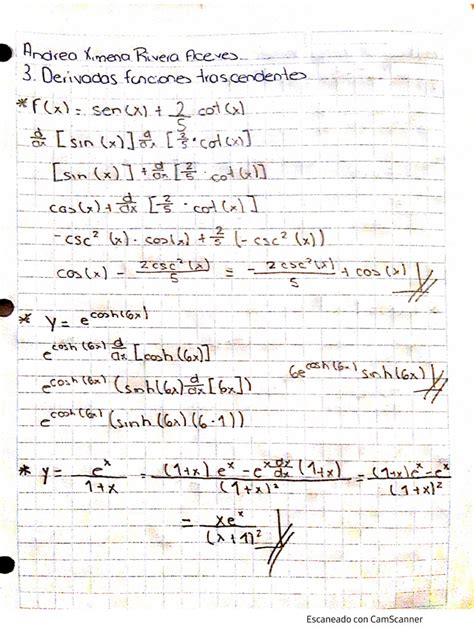 Andrea Ximena Rivera Aceves
3. Derivadas funciones trascendentes
* f(x) = sen(x) + 2/5 cot(x)
d/dx [sin (x)] d/dx [2/5 · cot(x)]
[sin (x)] + d/dx [2/5 · cot(x)]
cos(x) + d/dx [2/5 · cot(x)]
-csc² (x) · cos(x) + 2/5 (-csc² (x))
cos(x) - 2csc²(x)/5 = - 2csc²(x)/5 + cos(x)
* y = e^cosh(6x)
e^cosh(6x) d/dx [cosh(6x)]
e^cosh(6x) (sinh(6x) d/dx [6x]) 6e^cosh(6x) sinh(6x)
e^cosh(6x) (sinh(6x)(6·1))
* y = e^x/1+x = (1+x) e^x - e^x dx/dx (1+x)/(1+x)² = (1+x)e^x - e^x/(1+x)²
= xe^x/(x+1)²
Escaneado con CamScanner